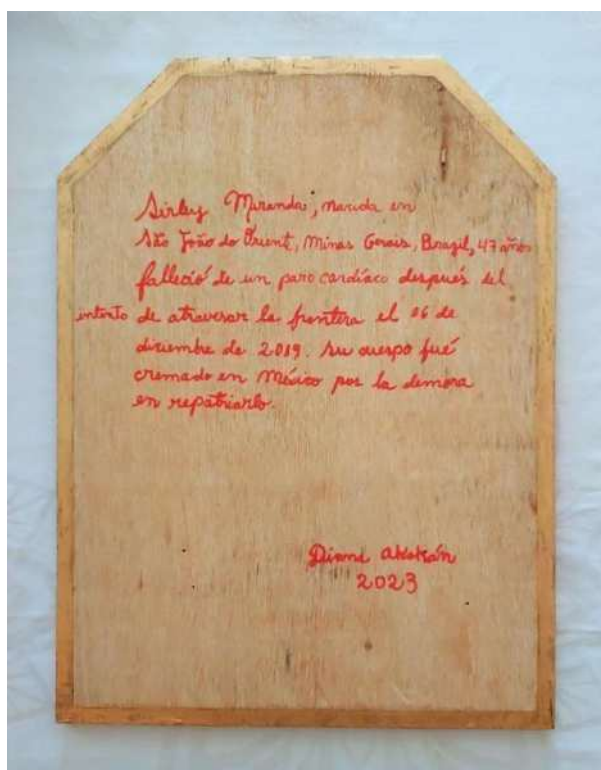 Sirley Miranda, nacida en
São João do Orient, Minas Gerais, Brazil, 47 años
falleció de un paro cardíaco después del
intento de atravesar la frontera el 06 de
diciembre de 2019. Su cuerpo fué
cremado en México por la demora
en repatriarlo.
2023